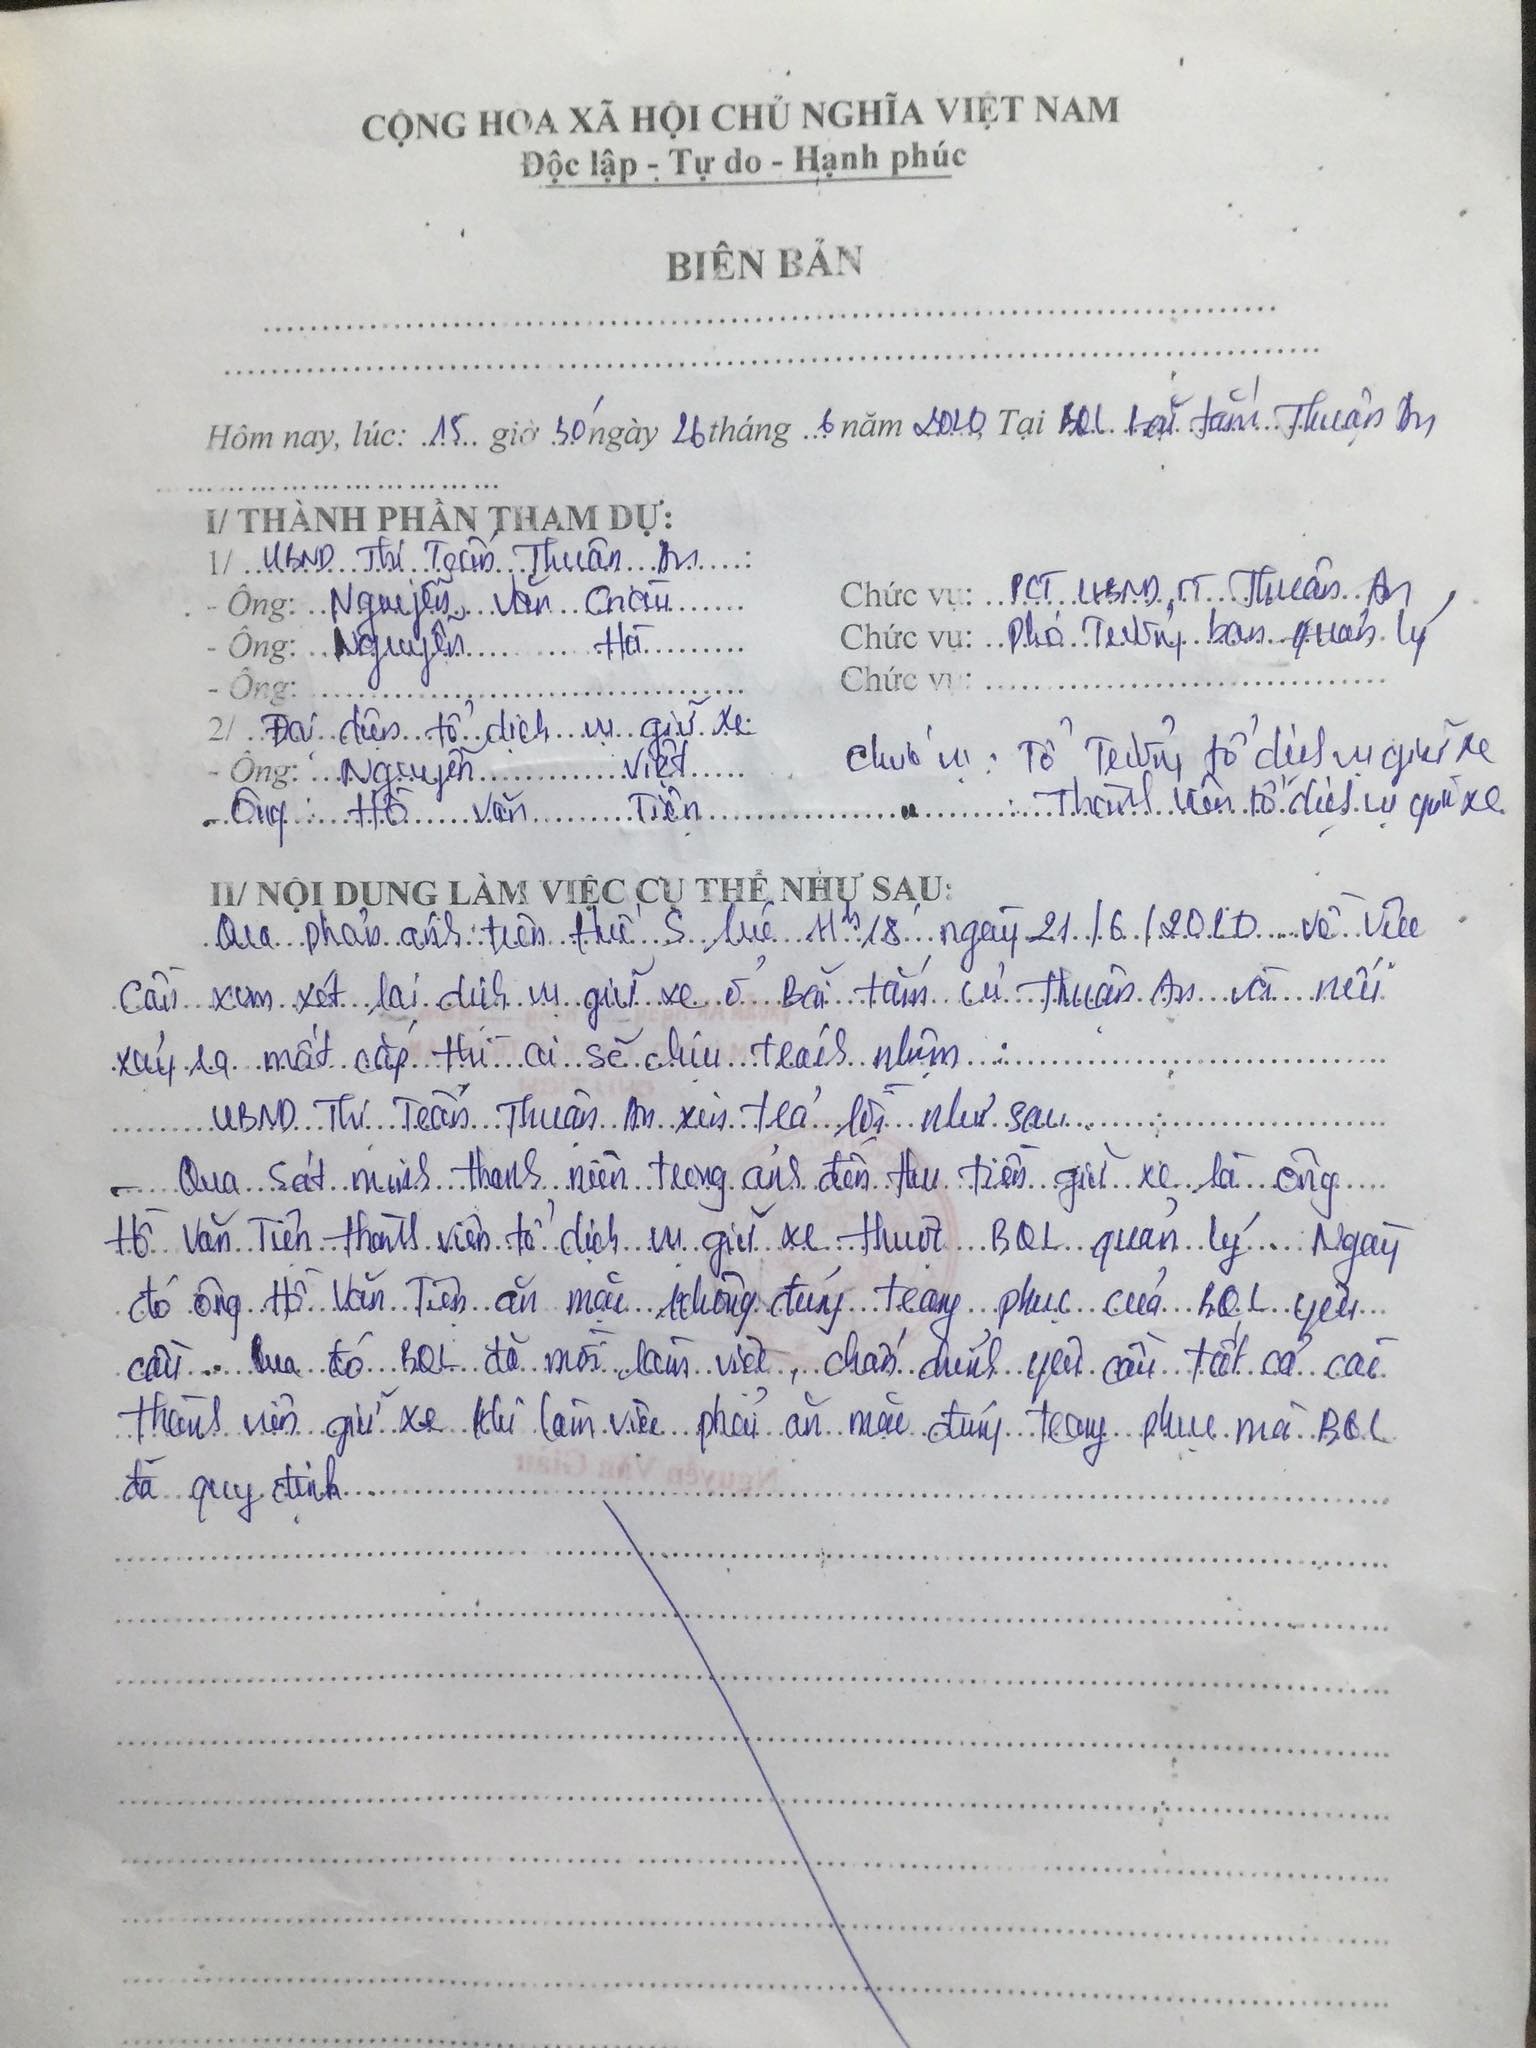 CỘNG HÒA XÃ HỘI CHỦ NGHĨA VIỆT NAM
Độc lập - Tự do - Hạnh phúc
BIÊN BẢN
Hôm nay, lúc: 15 giờ 30' ngày 26 tháng 6 năm 2020, Tại BQL bãi tắm Thuận An
I/ THÀNH PHẦN THAM DỰ:
1/ UBND Thị Trấn Thuận An :
- Ông: Nguyễn Văn Châu Chức vụ: PCT UBND TT Thuận An,
- Ông: Nguyễn Hà Chức vụ: Phó Trưởng ban quản lý
- Ông: Chức vụ:
2/ Đại diện tổ dịch vụ giữ xe:
- Ông: Nguyễn Việt Chức vụ: Tổ Trưởng tổ dịch vụ giữ xe
- Ông: Hồ Văn Tiện " : Thành viên tổ dịch vụ giữ xe
II/ NỘI DUNG LÀM VIỆC CỤ THỂ NHƯ SAU:
Qua phản ánh trên Huế S lúc 11h18' ngày 21/6/2020 về việc
cần xem xét lại dịch vụ giữ xe ở Bãi tắm Thuận An và nếu
xảy ra mất cắp thì ai sẽ chịu trách nhiệm :
UBND Thị Trấn Thuận An xin trả lời như sau :
- Qua xác minh thanh niên trong ảnh đến thu tiền giữ xe là ông
Hồ Văn Tiện thành viên tổ dịch vụ giữ xe thuộc BQL quản lý. Ngày
đó ông Hồ Văn Tiện ăn mặc không đúng trang phục của BQL yêu
cầu. Qua đó BQL đã mời làm việc, chấn chỉnh yêu cầu tất cả các
thành viên giữ xe khi làm việc phải ăn mặc đúng trang phục mà BQL
đã quy định
Nguyễn Văn Giàu